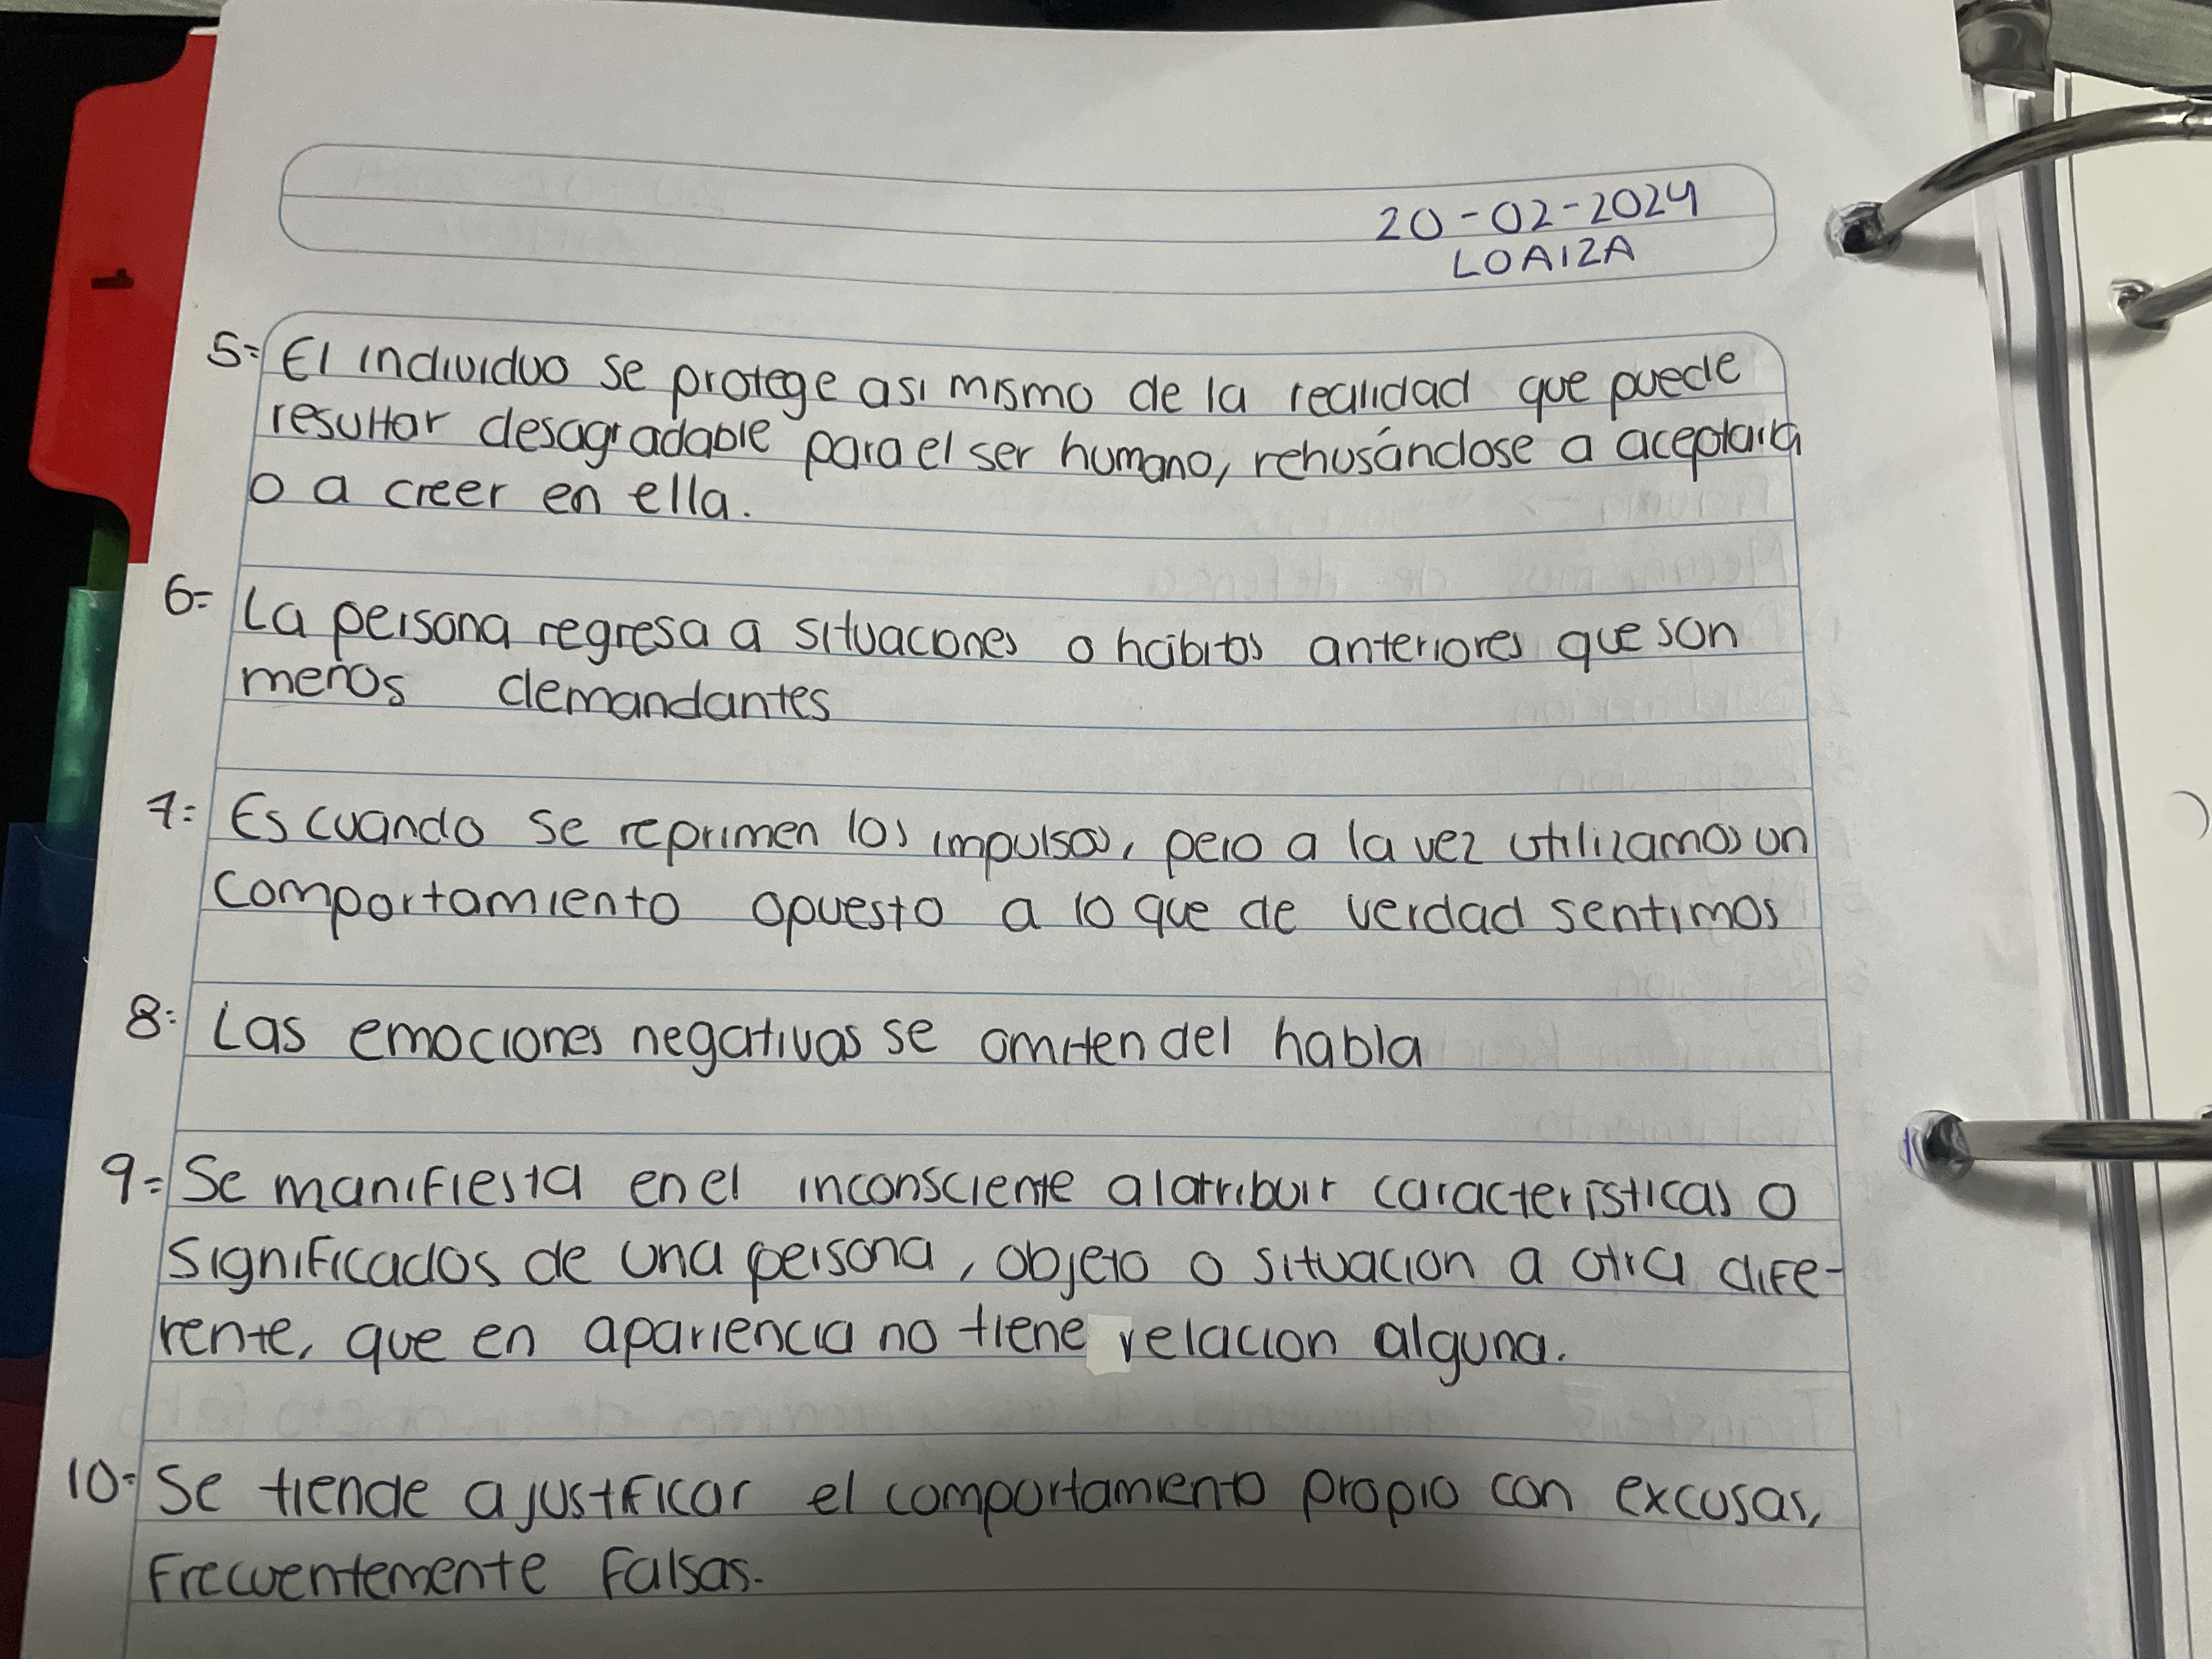 20-02-2024
LOAIZA
1
5= El individuo se protege asi mismo de la realidad que puede
resultar desagradable para el ser humano, rehusándose a aceptarla
o a creer en ella.
6= La persona regresa a situaciones o habitos anteriores que son
menos demandantes
7= Es cuando se reprimen los impulsos, pero a la vez utilizamos un
comportamiento opuesto a lo que de verdad sentimos
8= Las emociones negativas se omiten del habla
9= Se manifiesta en el inconsciente al atribuir características o
significados de una persona, objeto o situacion a otra dife-
rente, que en apariencia no tiene relacion alguna.
10= Se tiende a justificar el comportamiento propio con excusas,
Frecuentemente Falsas.